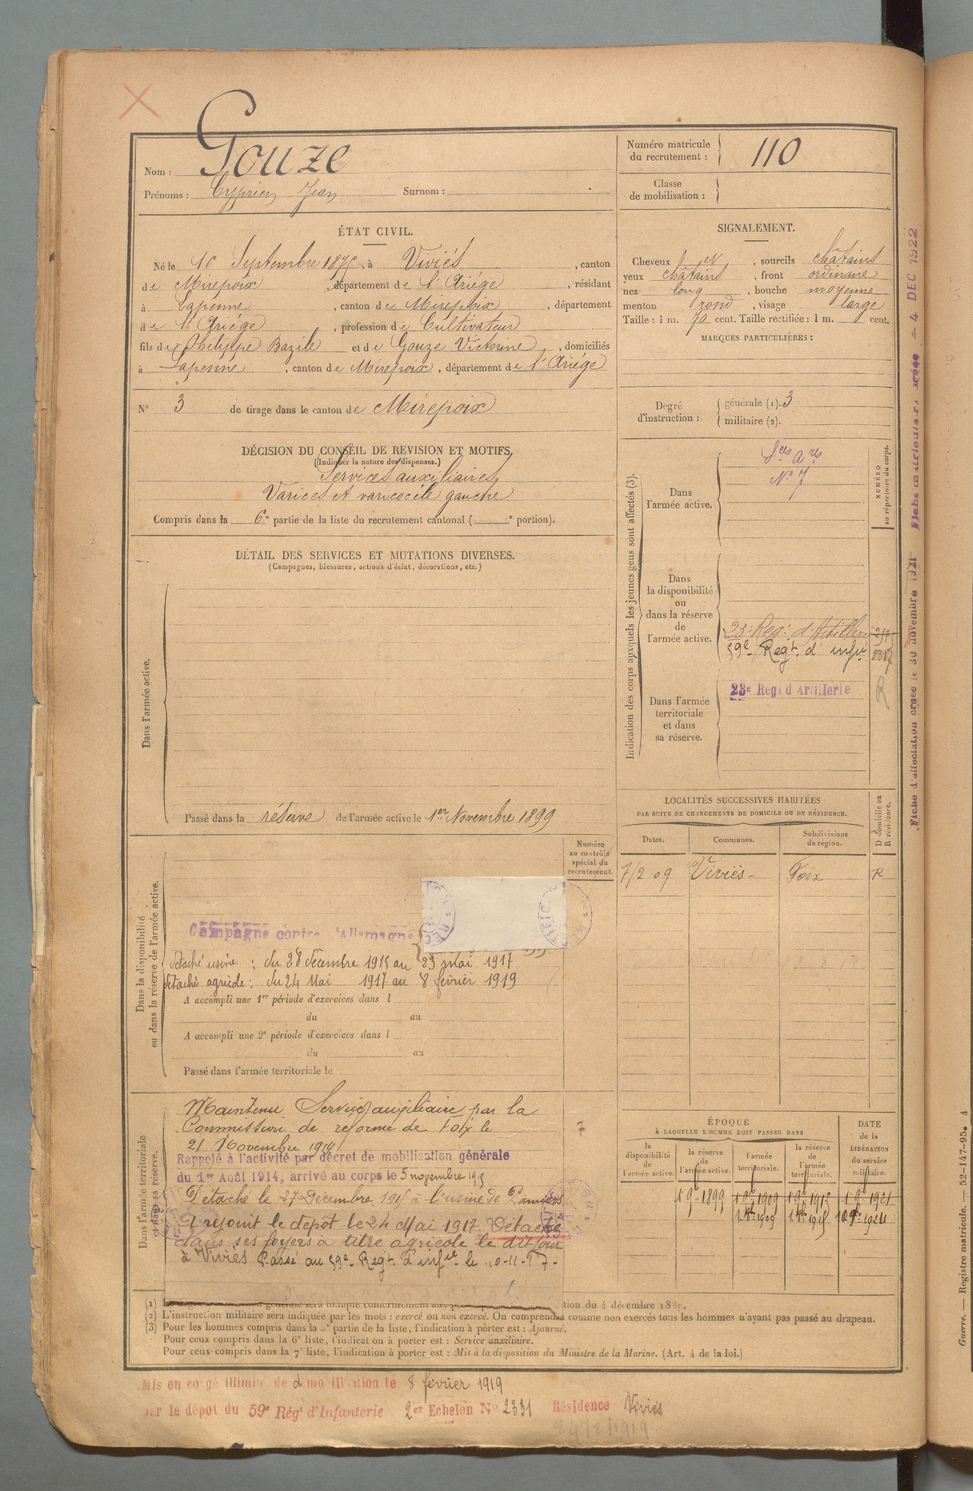 Nom : Gouze
Prénoms : Cyprien Jean Surnom :
Numéro matricule du recrutement : 110
Classe de mobilisation :
ÉTAT CIVIL.
Né le 16 Septembre 1875, à Viviès, canton
de Mirepoix, département de l'Ariége, résidant
à Lapenne, canton de Mirepoix, département
de l'Ariége, profession de Cultivateur
fils de Philippe Bazile et de Gouze Victorine, domiciliés
à Lapenne, canton de Mirepoix, département de l'Ariége
N° 3 de tirage dans le canton de Mirepoix
SIGNALEMENT.
Cheveux, sourcils châtains
yeux châtains, front ordinaire
nez long, bouche moyenne
menton rond, visage large
Taille : 1 m. 70 cent. Taille rectifiée : 1 m. cent.
MARQUES PARTICULIÈRES :
Degré d'instruction : générale (1). 3
militaire (2).
DÉCISION DU CONSEIL DE REVISION ET MOTIFS.
(Indiquer la nature des dispenses.)
Services auxiliaires
Varices et varicocèle gauche
Compris dans la 6e partie de la liste du recrutement cantonal ( e portion).
DÉTAIL DES SERVICES ET MUTATIONS DIVERSES.
(Campagnes, blessures, actions d'éclat, décorations, etc.)
Dans l'armée active.
Passé dans la réserve de l'armée active le 1er Novembre 1899
Indication des corps auxquels les jeunes gens sont affectés (3).
NUMÉRO au répertoire du corps.
Dans l'armée active.
Sces Ares
N° 7
Dans la disponibilité ou dans la réserve de l'armée active.
23e Reg. d'Artillerie
59e Regt. d'infie
Dans l'armée territoriale et dans sa réserve.
23e Regt d'Artillerie
R
LOCALITÉS SUCCESSIVES HABITÉES
PAR SUITE DE CHANGEMENTS DE DOMICILE OU DE RÉSIDENCE.
Dates. Communes. Subdivisions de région. D domicile ou R résidence.
7/2 09 Viviès Foix R
Dans la disponibilité ou dans la réserve de l'armée active.
Numéro au contrôle spécial du recrutement.
Campagne contre l'Allemagne
détaché usine : du 28 décembre 1915 au 23 mai 1917
détaché agricole : du 24 Mai 1917 au 8 février 1919
A accompli une 1re période d'exercices dans l
du au
A accompli une 2e période d'exercices dans l
du au
Passé dans l'armée territoriale le
Dans l'armée territoriale et dans sa réserve.
Maintenu Service auxiliaire par la
Commission de réforme de Foix le
21 Novembre 1914
7
Rappelé à l'activité par décret de mobilisation générale
du 1er Août 1914, arrivé au corps le 5 novembre 1915
Détaché le 27 décembre 1915 à l'usine de Pamiers
A rejoint le dépôt le 24 Mai 1917. Détaché
dans ses foyers à titre agricole le dit jour
à Viviès Passé au 59e Regt. d'infie le 10-11-17-
ÉPOQUE
À LAQUELLE L'HOMME DOIT PASSER DANS
la disponibilité de l'armée active.
la réserve de l'armée active.
l'armée territoriale.
la réserve de l'armée territoriale.
DATE de la LIBÉRATION du service militaire.
tion du 4 décembre 1889.
(2) L'instruction militaire sera indiquée par les mots : exercé ou non exercé. On comprendra comme non exercés tous les hommes n'ayant pas passé au drapeau.
(3) Pour les hommes compris dans la 5e partie de la liste, l'indication à porter est : Ajourné.
Pour ceux compris dans la 6e liste, l'indication à porter est : Service auxiliaire.
Pour ceux compris dans la 7e liste, l'indication à porter est : Mis à la disposition du Ministre de la Marine. (Art. 4 de la loi.)
Mis en congé illimité de démobilisation le 8 février 1919
par le dépôt du 59e Régt d'Infanterie 2er Echelon N° 2331 Résidence Viviès
Fiche d'affectation créée le 30 novembre 1921
Fiche matriculaire créée 4 DEC 1922
Guerre. — Registre matricule. — 52-147-95. 4